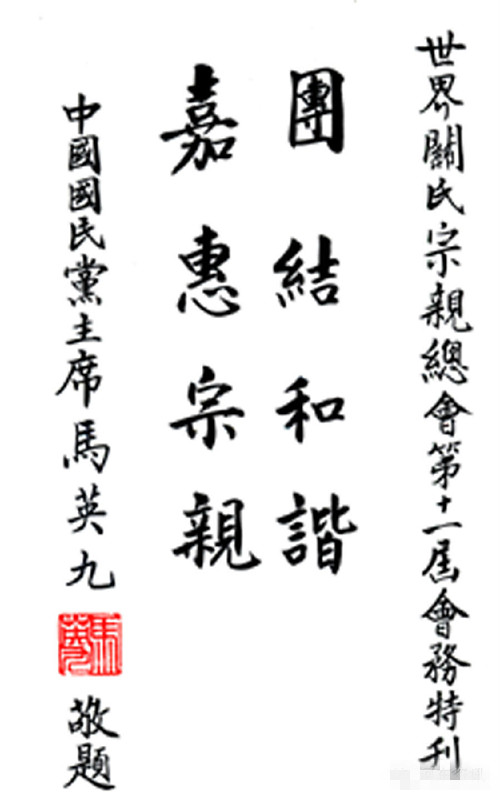 世界關氏宗親總會第十一屆會務特刊
團結和諧
嘉惠宗親
中國國民黨主席馬英九
馬英九
敬題